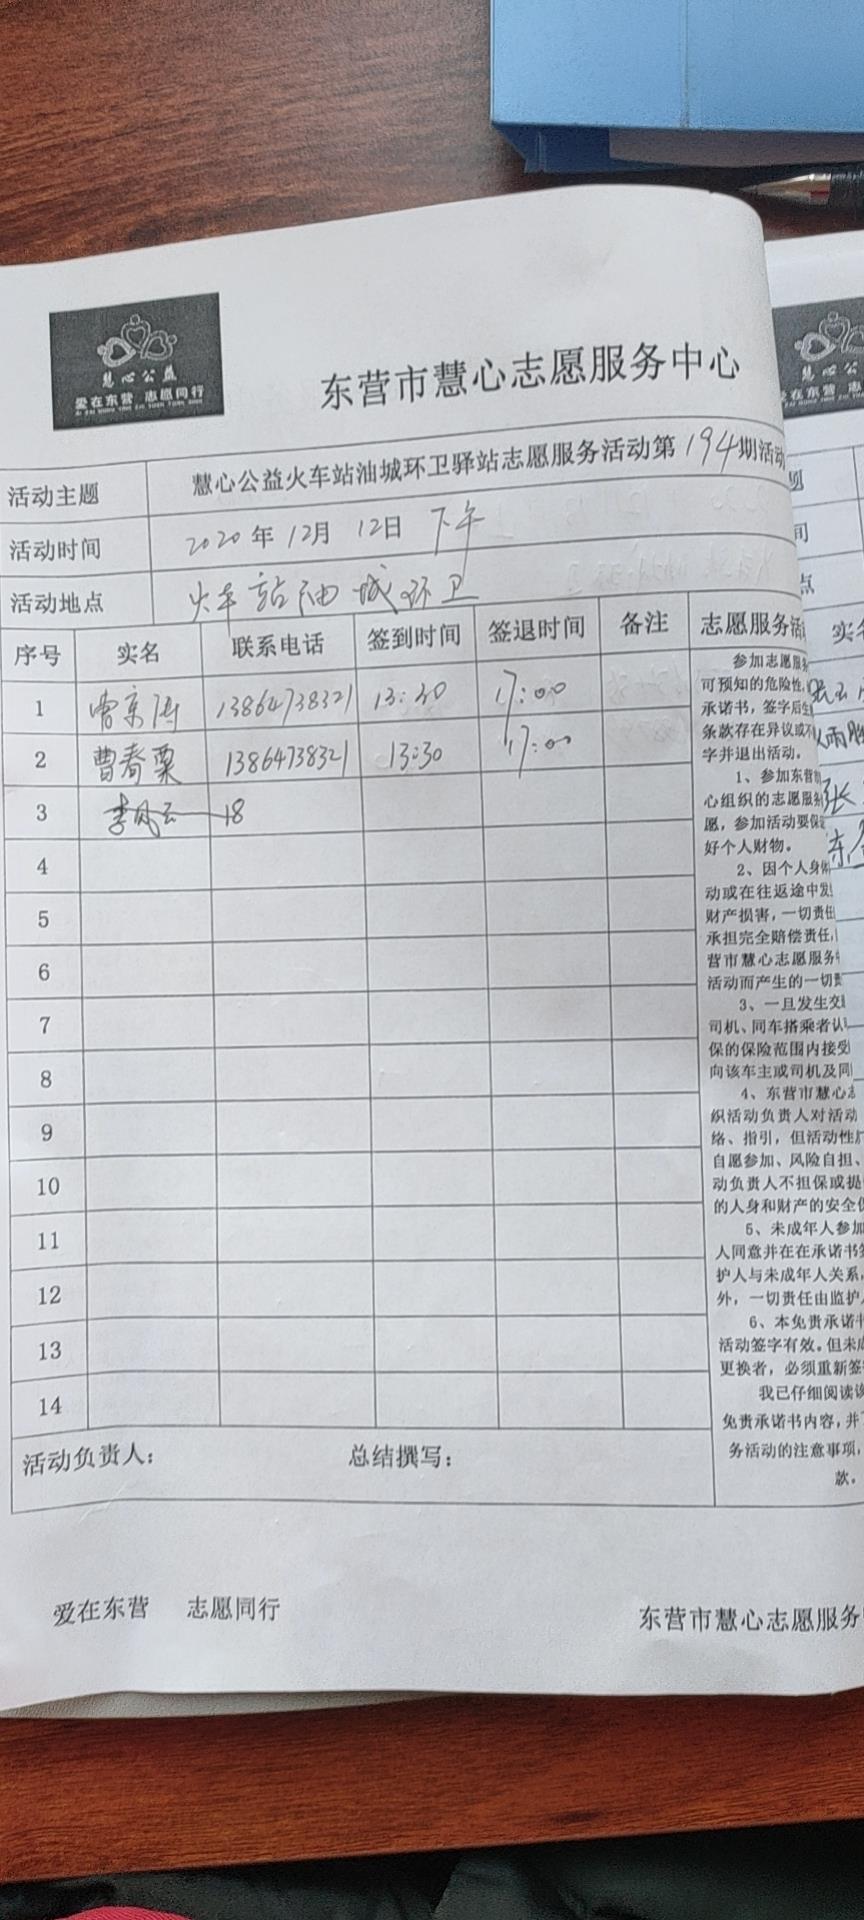 慧心公益
爱在东营 志愿同行
AI ZAI DONG YING ZHI YUAN TONG XING
东营市慧心志愿服务中心
活动主题 慧心公益火车站油城环卫驿站志愿服务活动第194期活动
活动时间 2020年12月12日 下午
活动地点 火车站油城环卫
序号 实名 联系电话 签到时间 签退时间 备注 志愿服务活
1 曹京涛 13864738321 13:30 17:00
2 曹春粟 13864738321 13:30 17:00
3 李风云 18
4
5
6
7
8
9
10
11
12
13
14
参加志愿服务
可预知的危险性,
承诺书,签字后生
条款存在异议或不
字并退出活动。
1、参加东营
心组织的志愿服务
愿,参加活动要保
好个人财物。
2、因个人身体
动或在往返途中发
财产损害,一切责任
承担完全赔偿责任,
营市慧心志愿服务
活动而产生的一切责
3、一旦发生交
司机、同车搭乘者认
保的保险范围内接受
向该车主或司机及同
4、东营市慧心志
织活动负责人对活动
络、指引,但活动性
自愿参加、风险自担、
动负责人不担保或提
的人身和财产的安全
5、未成年人参加
人同意并在在承诺书签
护人与未成年人关系,
外,一切责任由监护
6、本免责承诺书
活动签字有效。但未成
更换者,必须重新签
我已仔细阅读该
免责承诺书内容,并
务活动的注意事项,
款。
活动负责人: 总结撰写:
爱在东营 志愿同行
东营市慧心志愿服务